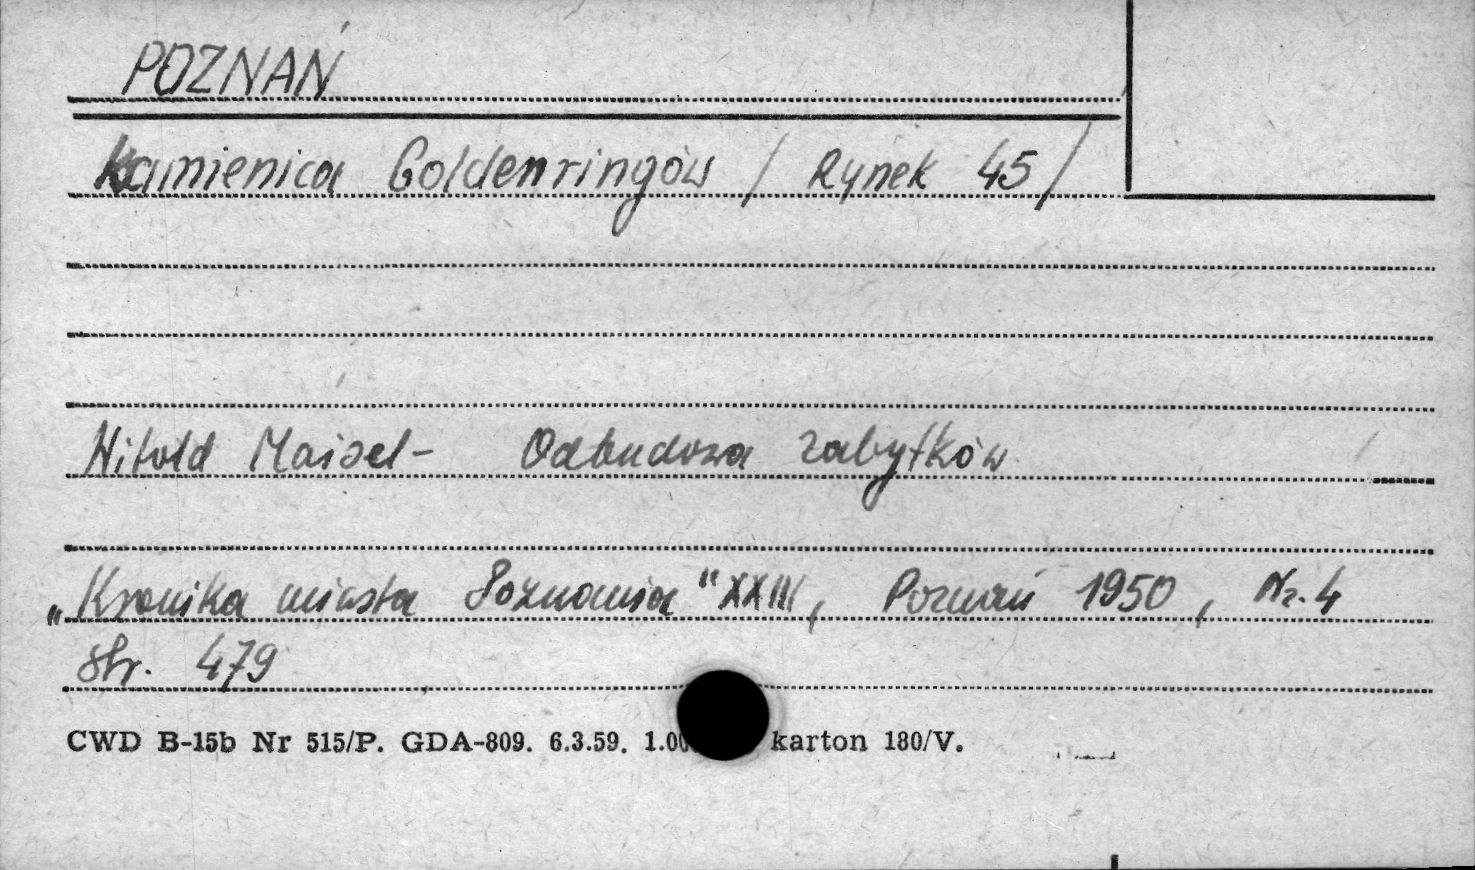 POZNAŃ
Kamienica Goldenringów / Rynek 45 /
Witold Maisel - Odbudowa zabytków
„Kronika miasta Poznania" XXIII, Poznań 1950, Nr. 4
str. 479
CWD B-15b Nr 515/P. GDA-809. 6.3.59. 1.00 karton 180/V.